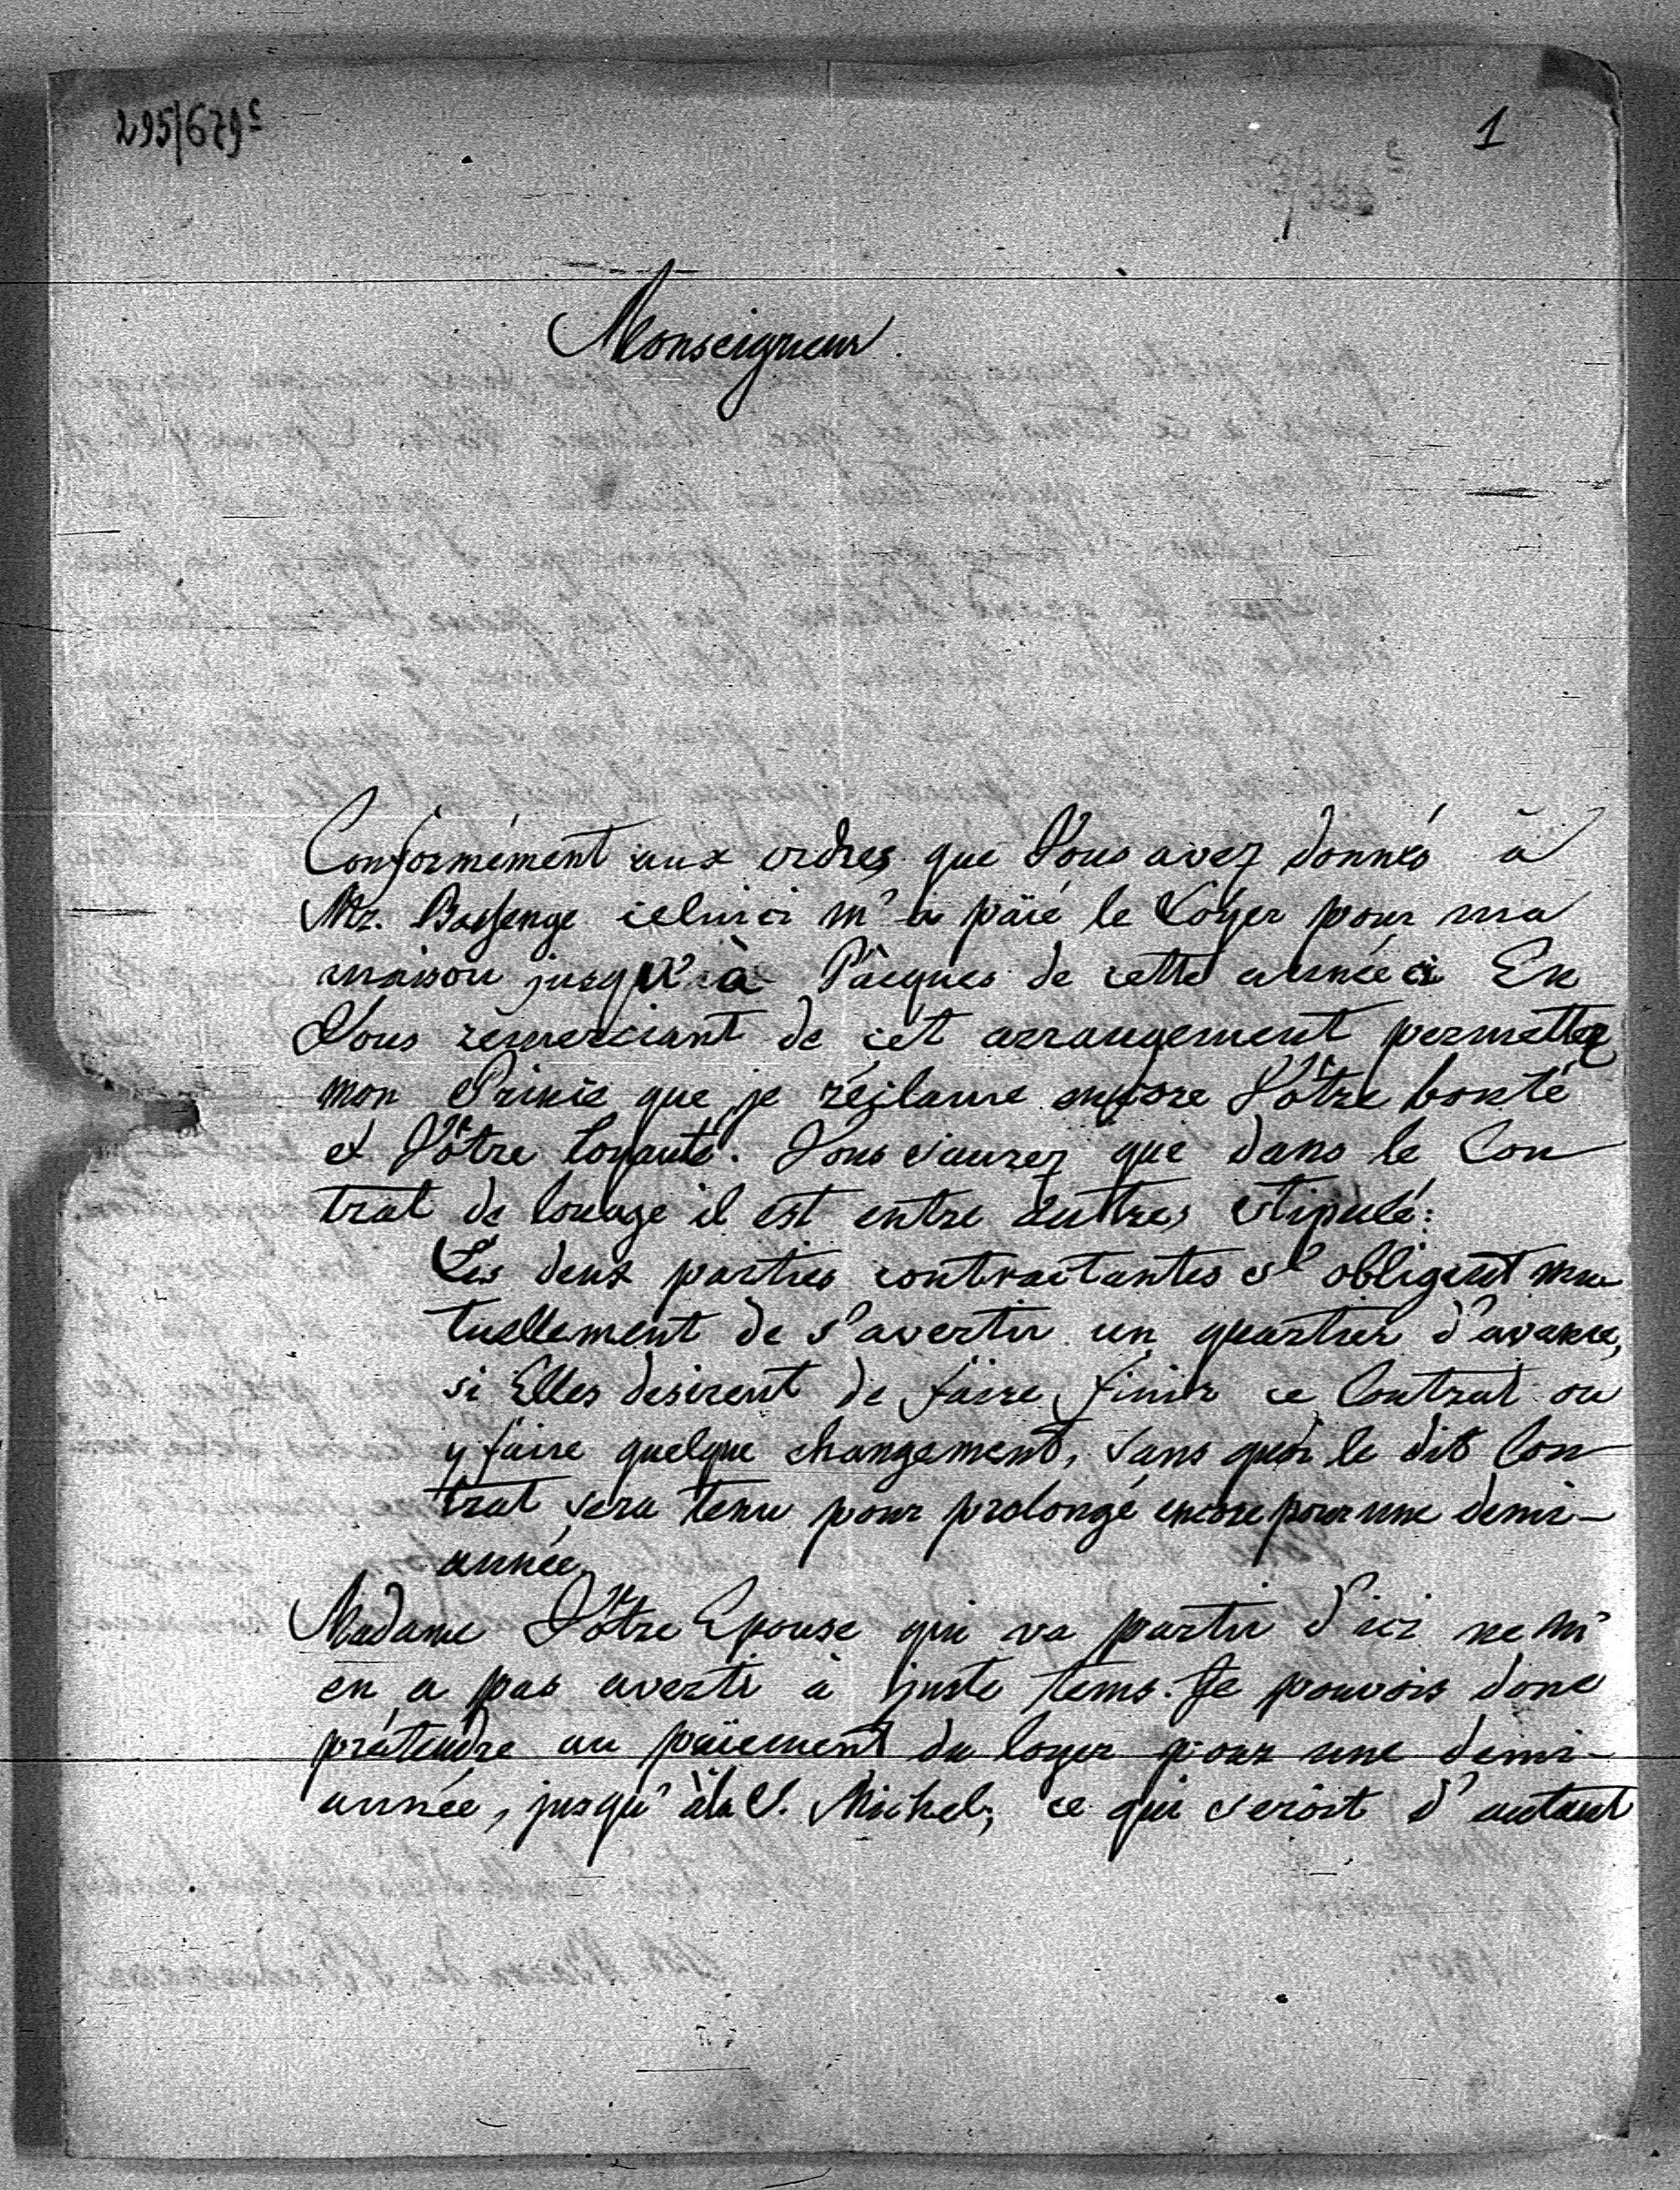 295/679c
1
Monseigneur
Conformément aux ordres que Vous avez donnés à
Mr. Bassenge celuici m'a païé le Loyer pour ma
maison jusqu'à Pâcques de cette année ci En
Vous remerciant de cet arrangement permettez
mon Prince que je réclame encore Vôtre bonté
et Vôtre loyauté. Vous saurez que dans le Con
trat de louage il est entre autres stipulé:
Les deux parties contractantes s'obligent mu
tuellement de s'avertir un quartier d'avance,
si Elles desirent de faire finir ce Contrat ou
y faire quelque changement, sans quoi le dit Con
trat sera tenu pour prolongé encore pour une demi-
année.
Madame Vôtre Epouse qui va partir d'ici ne m'
en a pas averti à juste tems. Je pouvois donc
prétendre au païement du loyer pour une demi-
année, jusqu'à la S. Michel; ce qui seroit d'autant